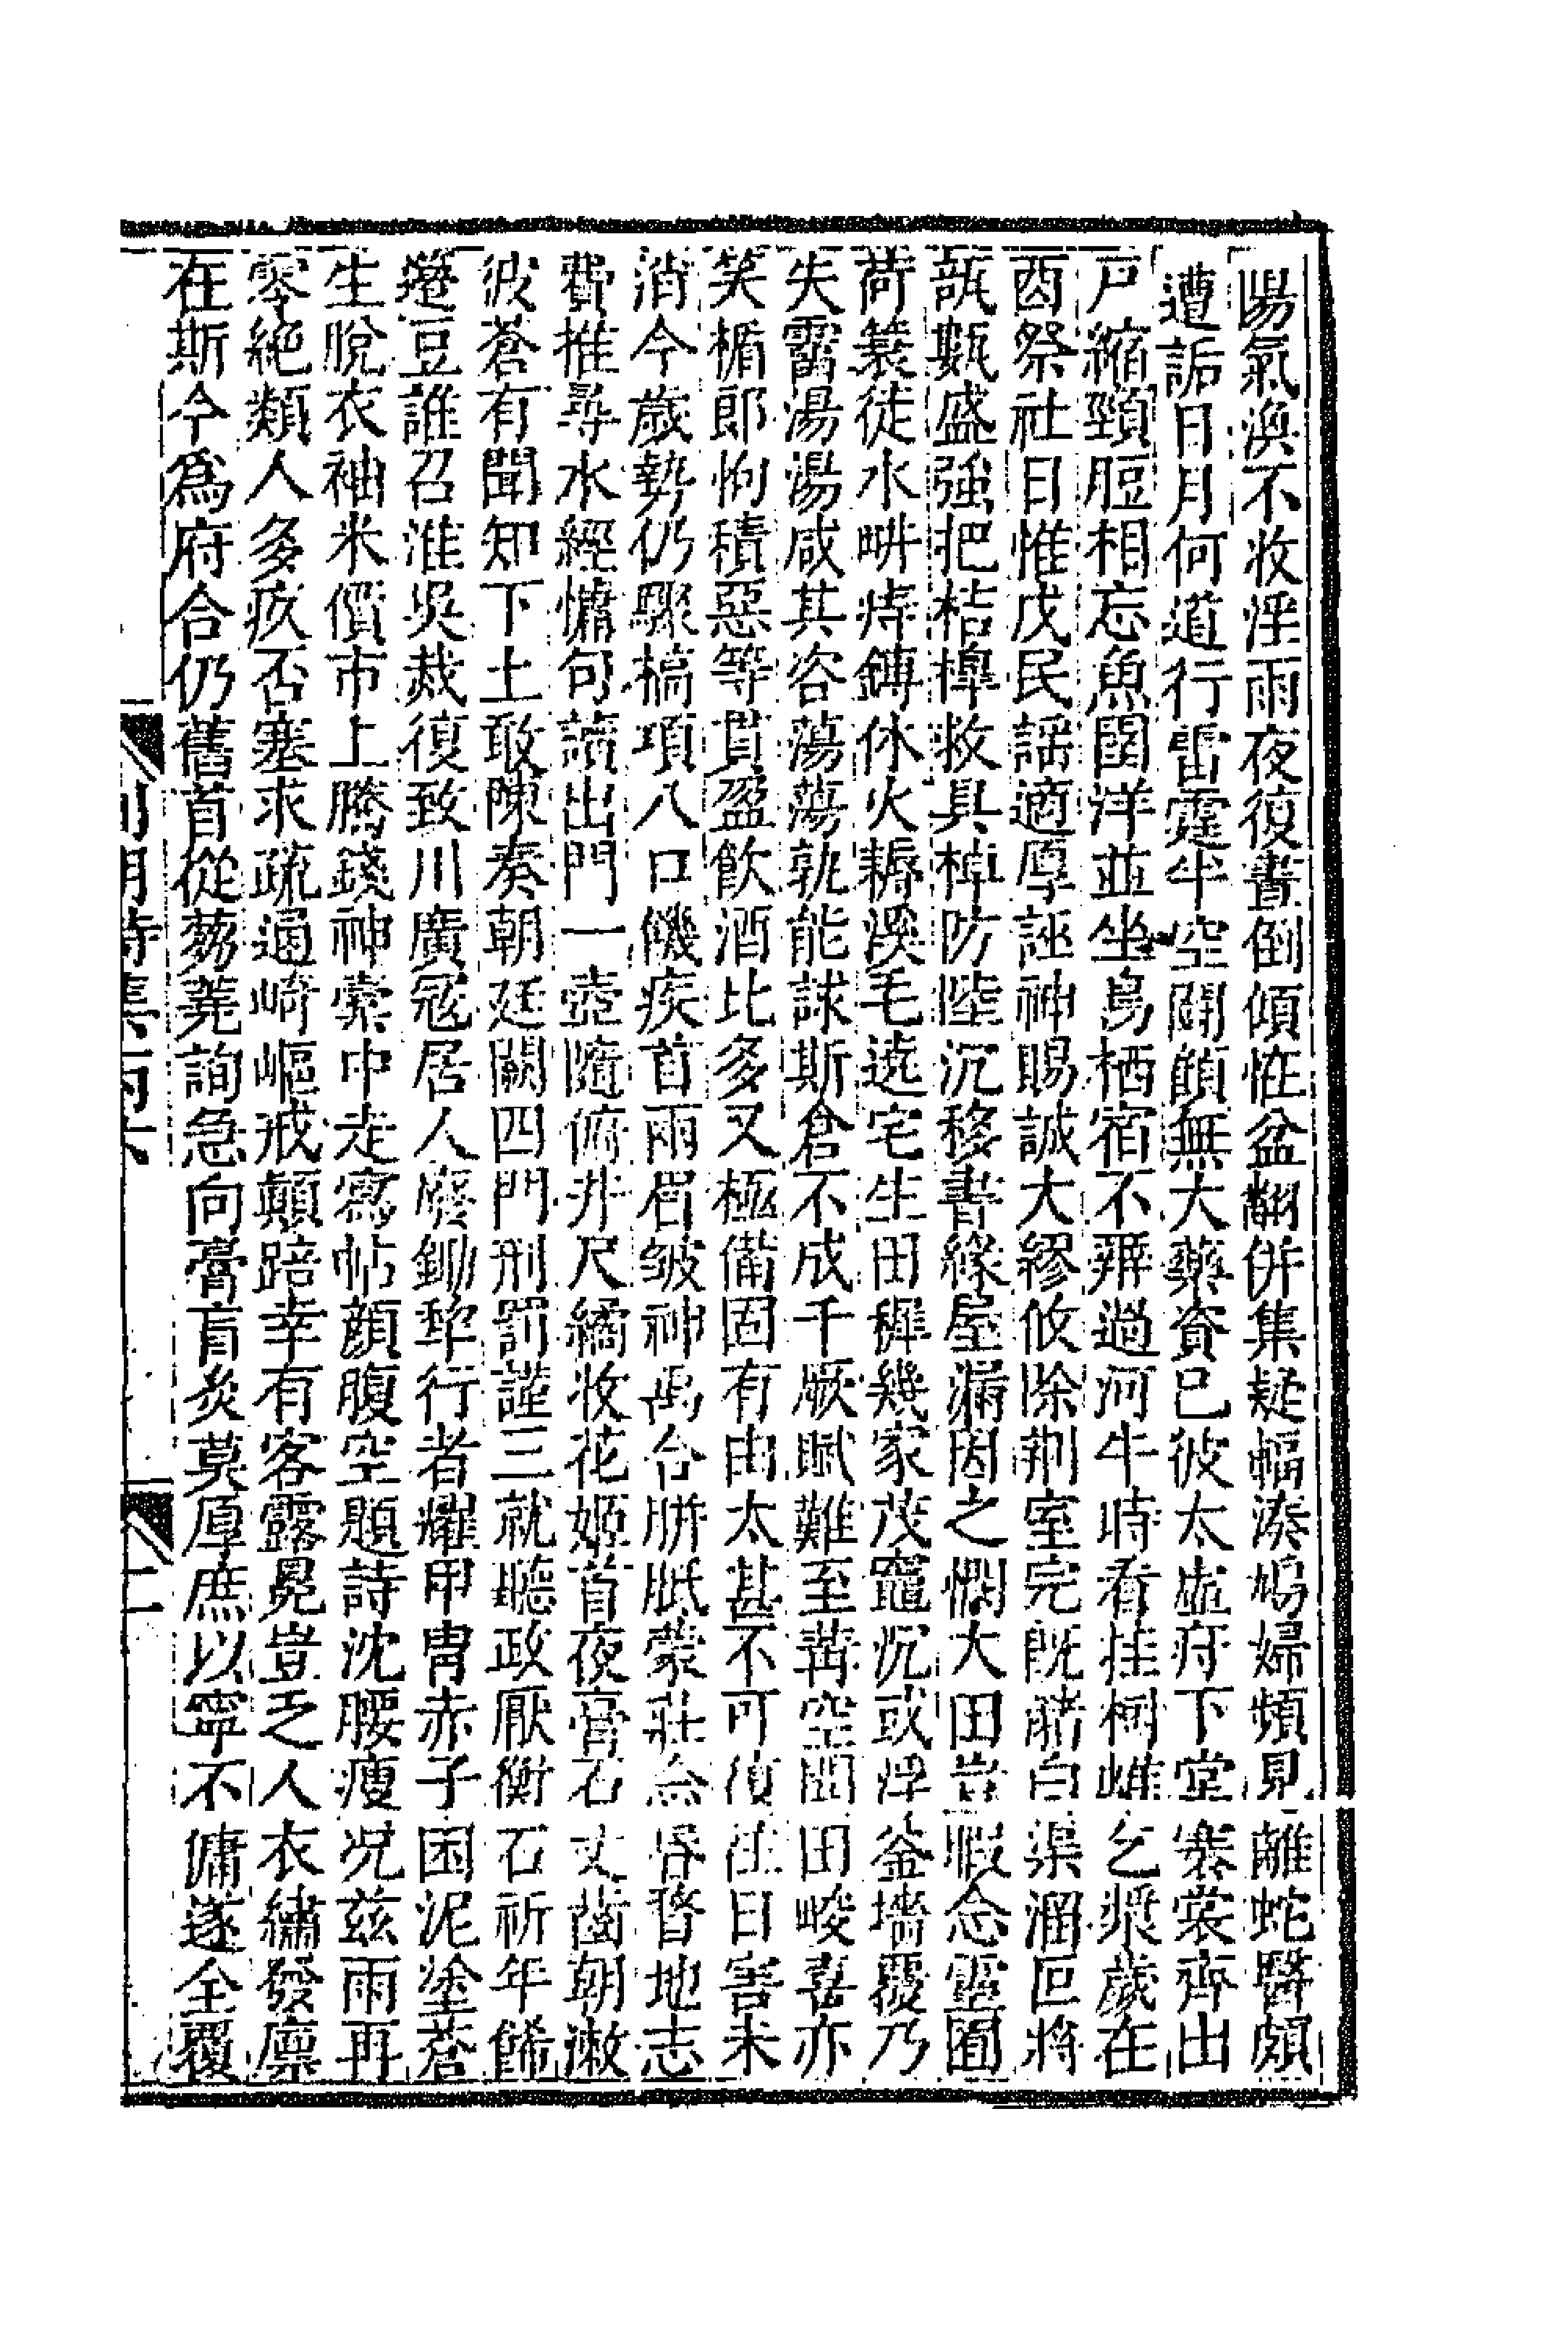 陽氣渙不收淫雨夜復晝倒傾恠盆翻併集疑蝠湊鳩婦頻見離蛇醫頗
遭詬日月何道行雷霆半空鬭顧無大藥資已彼太虛疛下堂褰裳齊出
戸縮頸脰相忘魚圉洋並坐鳥栖宿不辨過河牛時看挂樹雌乞漿歲在
酉祭社日惟戊民謡適厚誣神賜誠大繆攸除荆室完旣瀦白渠溜叵將
瓴甎盛強把桔槹救具棹防陸沉移書緣屋漏因之憫大田豈暇念靈囿
荷簑徒水畊痔鎛休火耨溪毛遶宅生田穉幾家茂竈沉或浮釡墻覆乃
失霤湯湯咸其咨蕩蕩孰能救斯倉不成千厥賦難至冓空聞田畯喜亦
笑楯郎怐積惡等貫盈飲酒比多又極備固有由太甚不可復注日害未
消今歲勢仍驟槁項八口饑疾首兩眉皴神禹合胼胝蒙莊㑒唇瞀地志
費推尋水經慵句讀出門一壺隨俯井尺繘收花姬首夜膏石丈齒朝漱
彼蒼有聞知下土敢陳奏朝廷闢四門刑罰謹三就聽政厭衡石祈年餙
籩豆誰召淮吳烖復致川廣寇居人廢鋤犂行者耀甲胄赤子困泥塗蒼
生脫衣袖米價市上騰錢神橐中走寫帖顔腹空題詩沈腰瘦况兹雨再
零絶類人多疚否塞求疏通崎嶇戒顛踣幸有客露冕豈乏人衣繡發廪
在斯今爲府合仍舊首從蒭蕘詢急向膏肓灸莫厚庶以寧不傭遂全覆
二